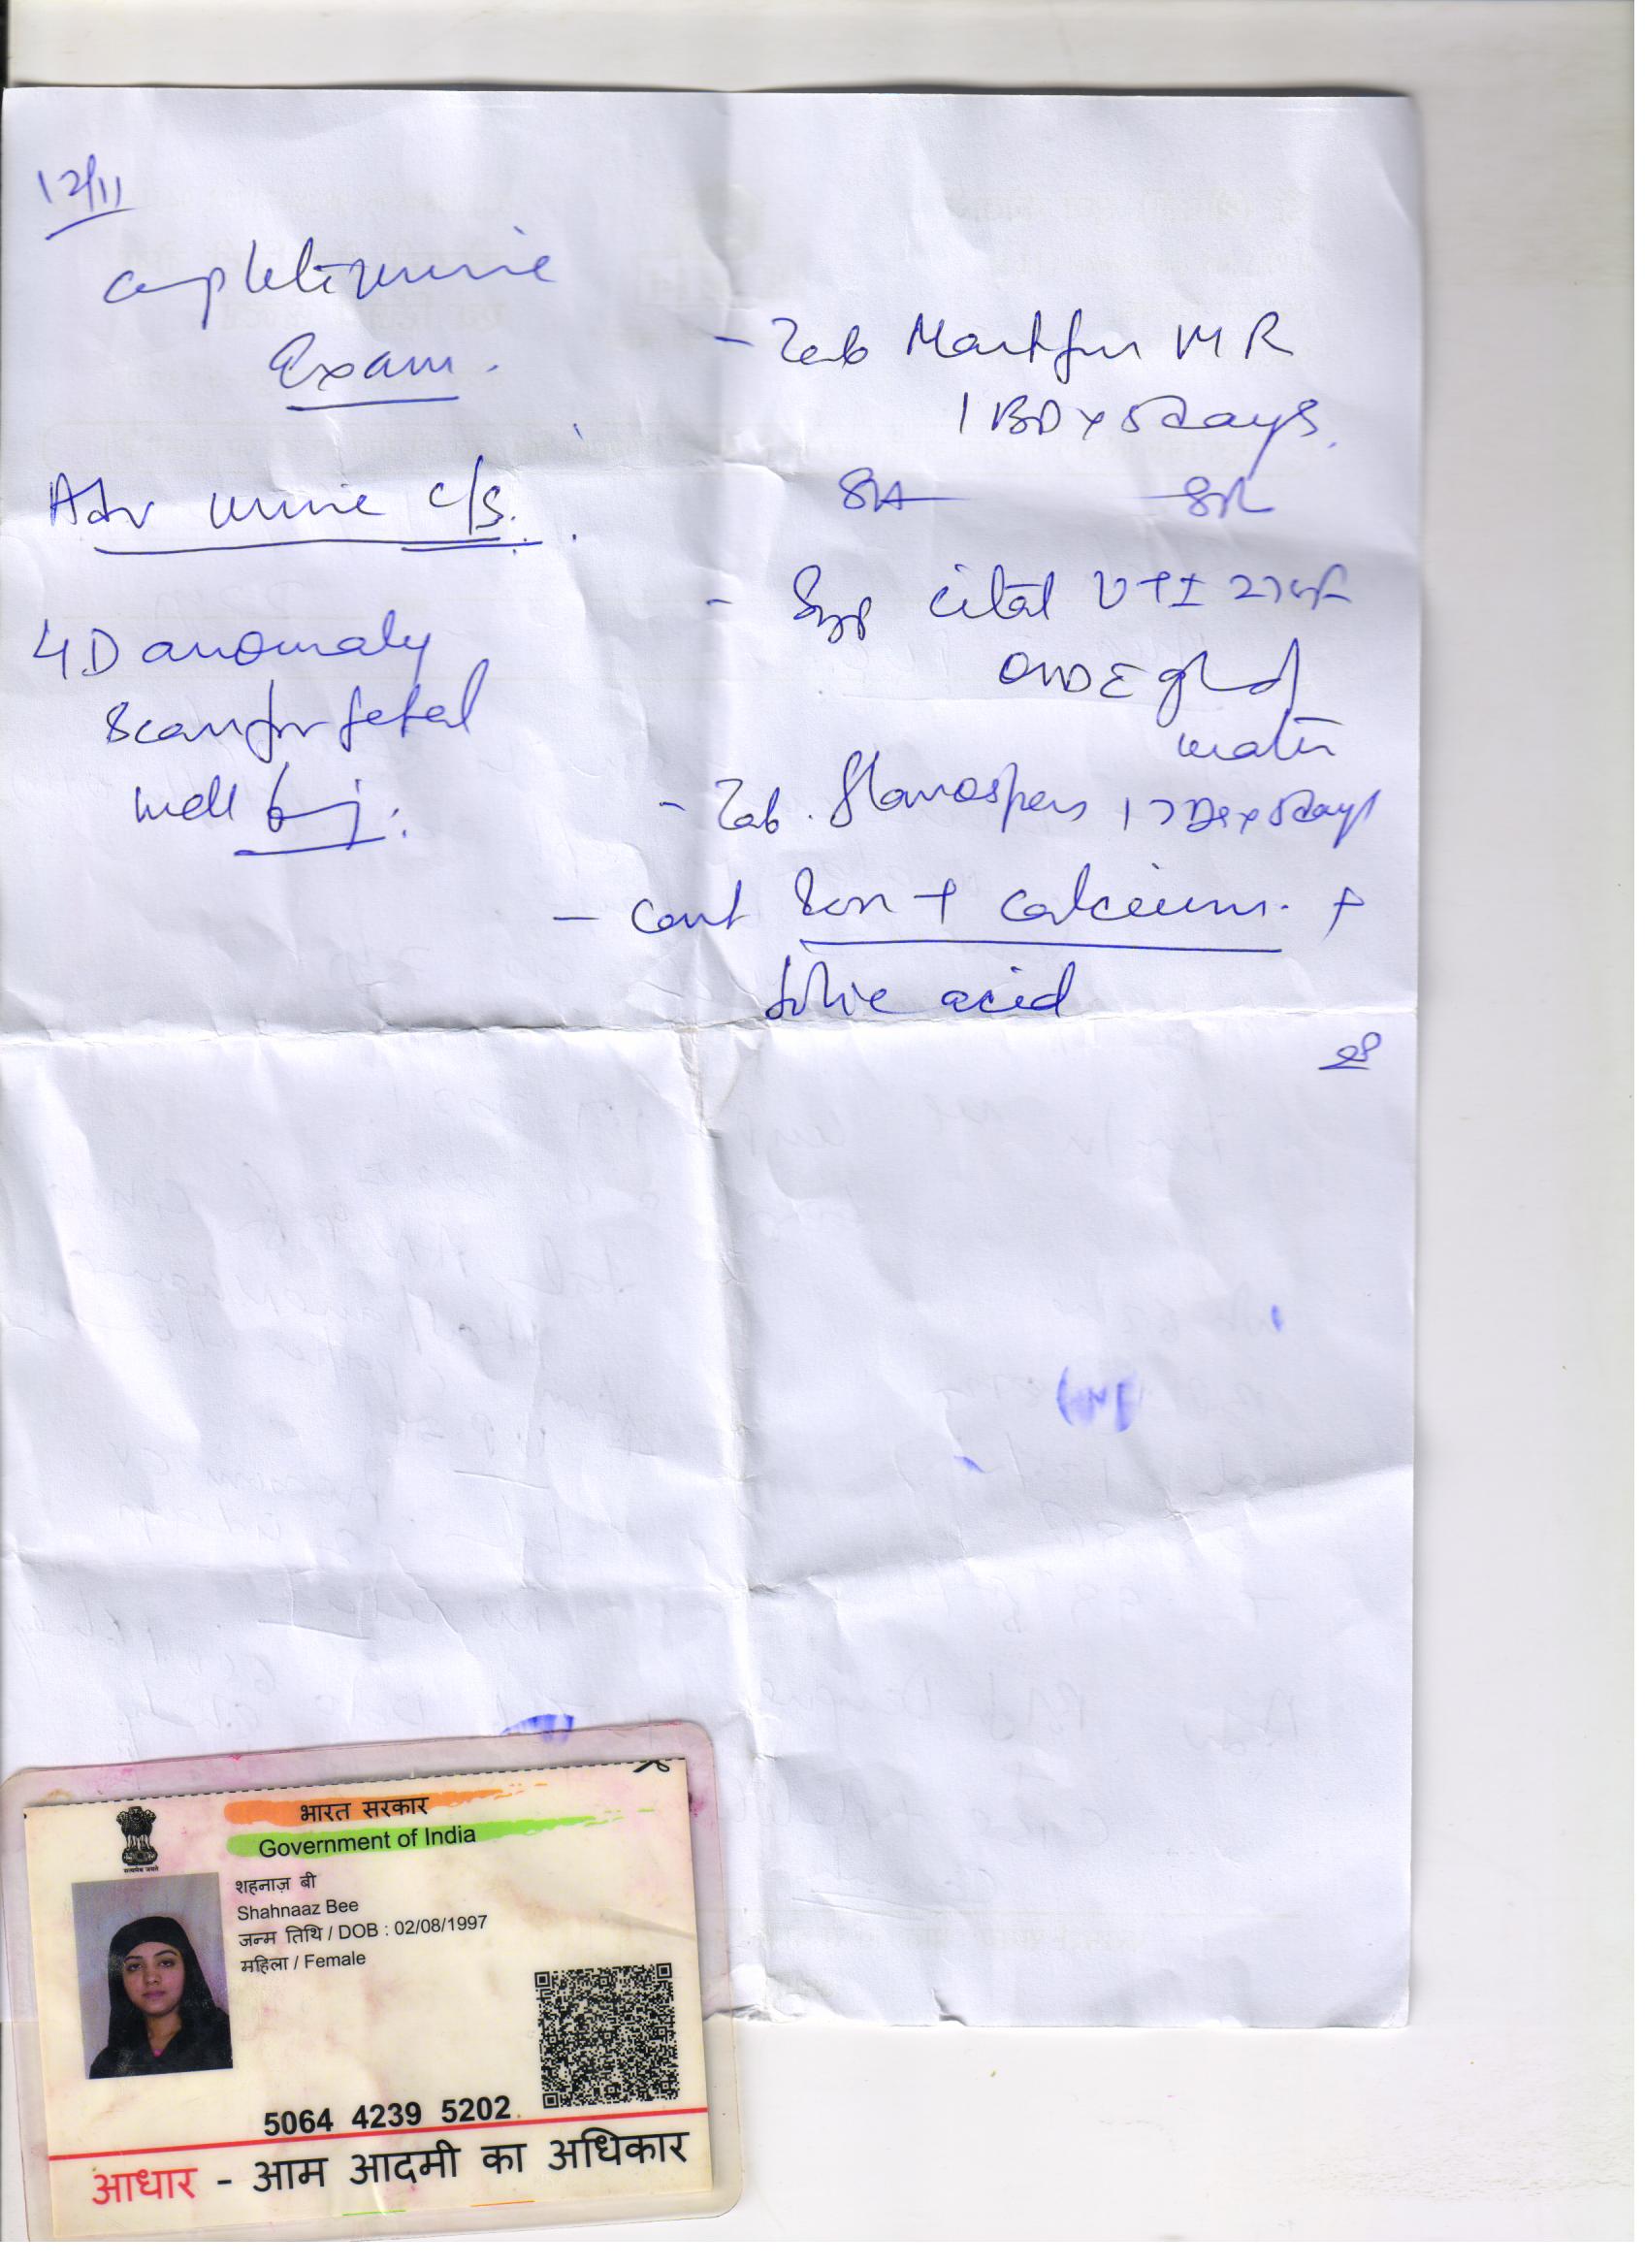 12/11
complete urine
Exam.
Adv urine c/s.
4D anomaly
scan for fetal
well being.
- Tab Martifur MR
1 BD x 5 days.
- Syp cital UTI
OND c gl of
water
- Tab. 1 TDS x 5 days
- cont Iron + calcium. +
folic acid
भारत सरकार
Government of India
शहनाज़ बी
Shahnaaz Bee
जन्म तिथि / DOB : 02/08/1997
महिला / Female
5064 4239 5202
आधार - आम आदमी का अधिकार